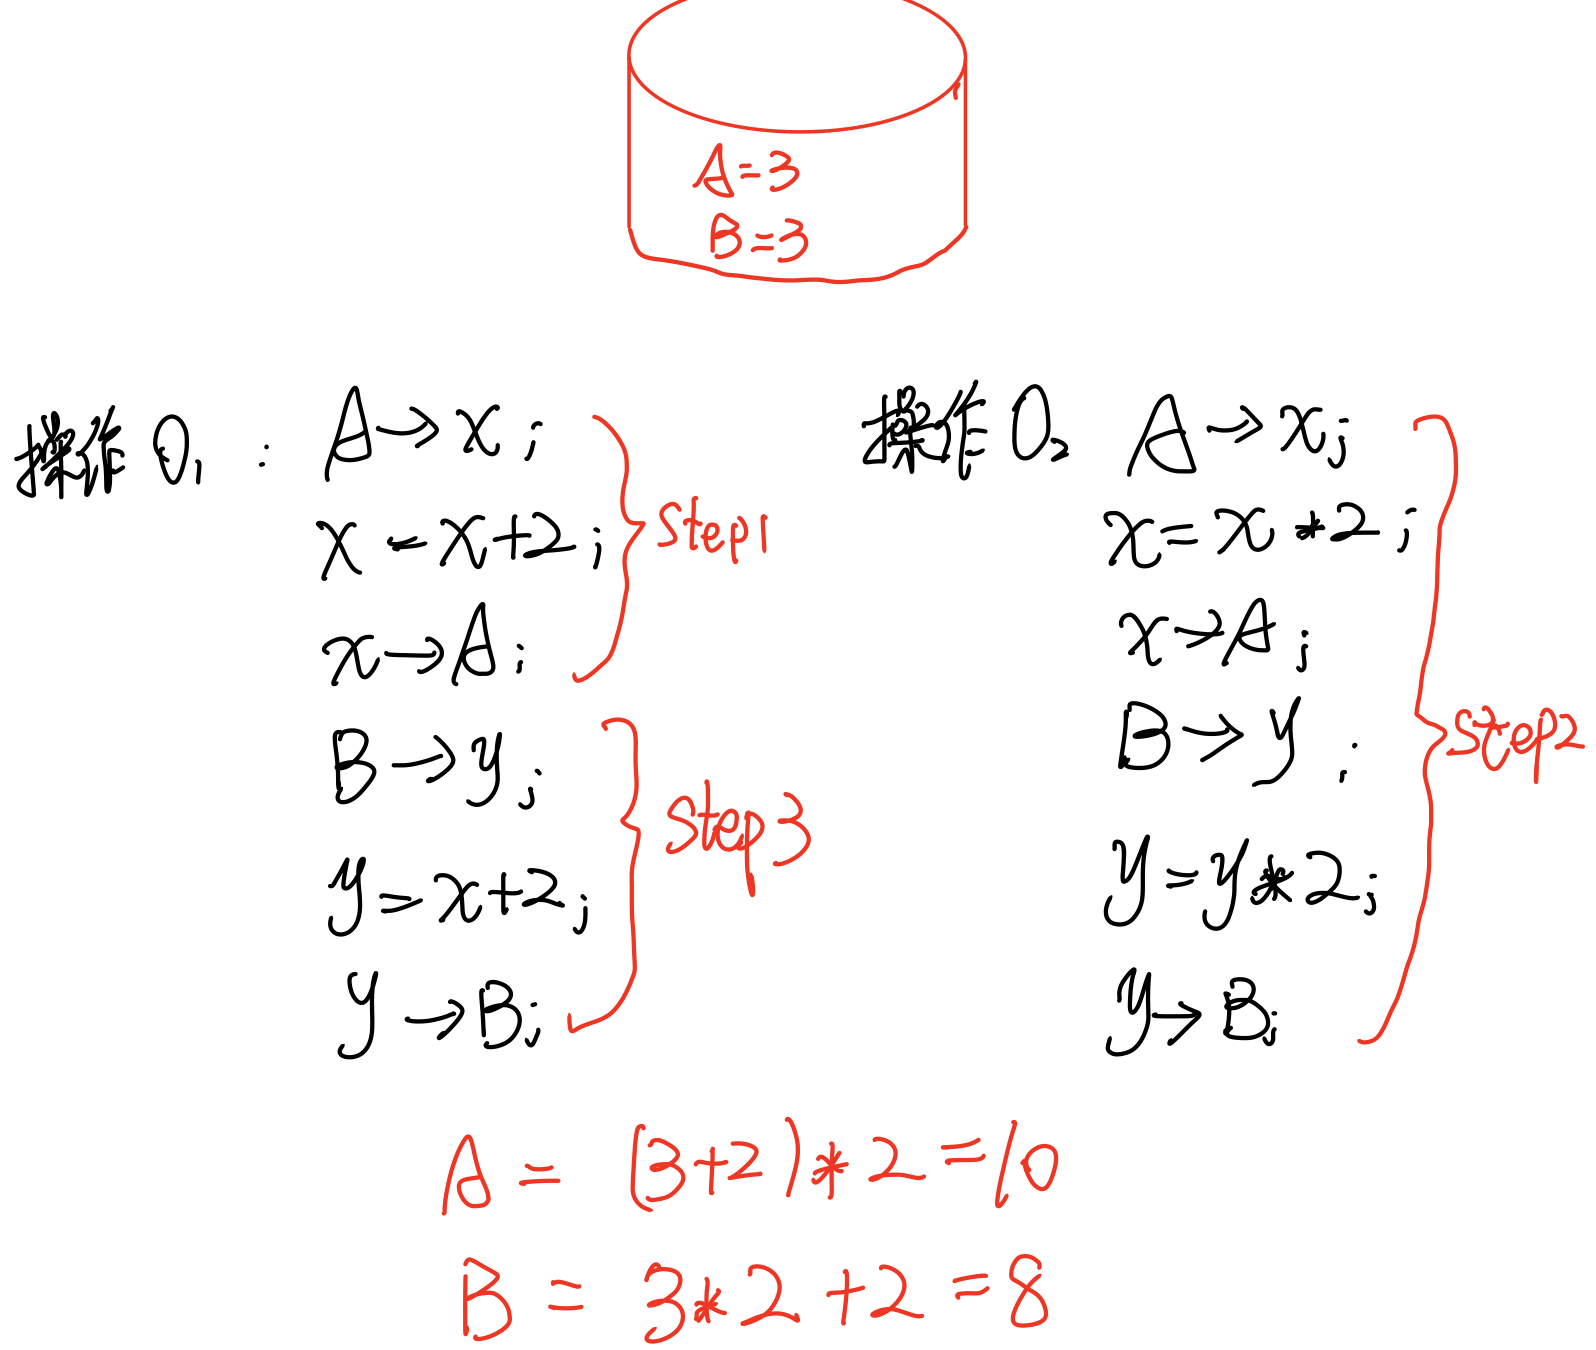 A=3
B=3
操作 O₁ : A→x;
x=x+2;
x→A;
Step1
B→y;
y=x+2;
y→B;
Step3
操作 O₂ A→x;
x=x*2;
x→A;
B→y;
y=y*2;
y→B;
Step2
A = (3+2)*2=10
B = 3*2+2=8